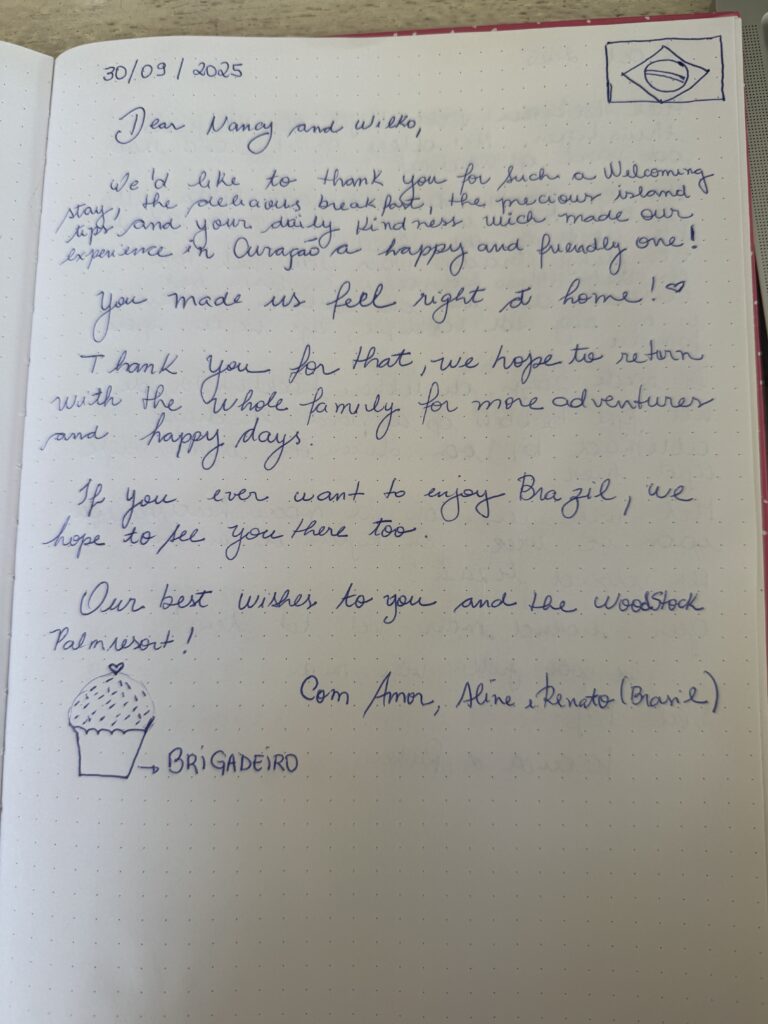 30/09/2025
Dear Nancy and Wilko,
We'd like to thank you for such a Welcoming
stay, the delicious breakfast, the precious island
tips and your daily kindness wich made our
experience in Curaçao a happy and friendly one!
You made us fell right at home! ♡
Thank you for that, we hope to return
with the whole family for more adventures
and happy days.
If you ever want to enjoy Brazil, we
hope to see you there too.
Our best wishes to you and the WoodStock
Palmresort!
Com Amor, Aline e Renato (Brasil)
→ BRIGADEIRO